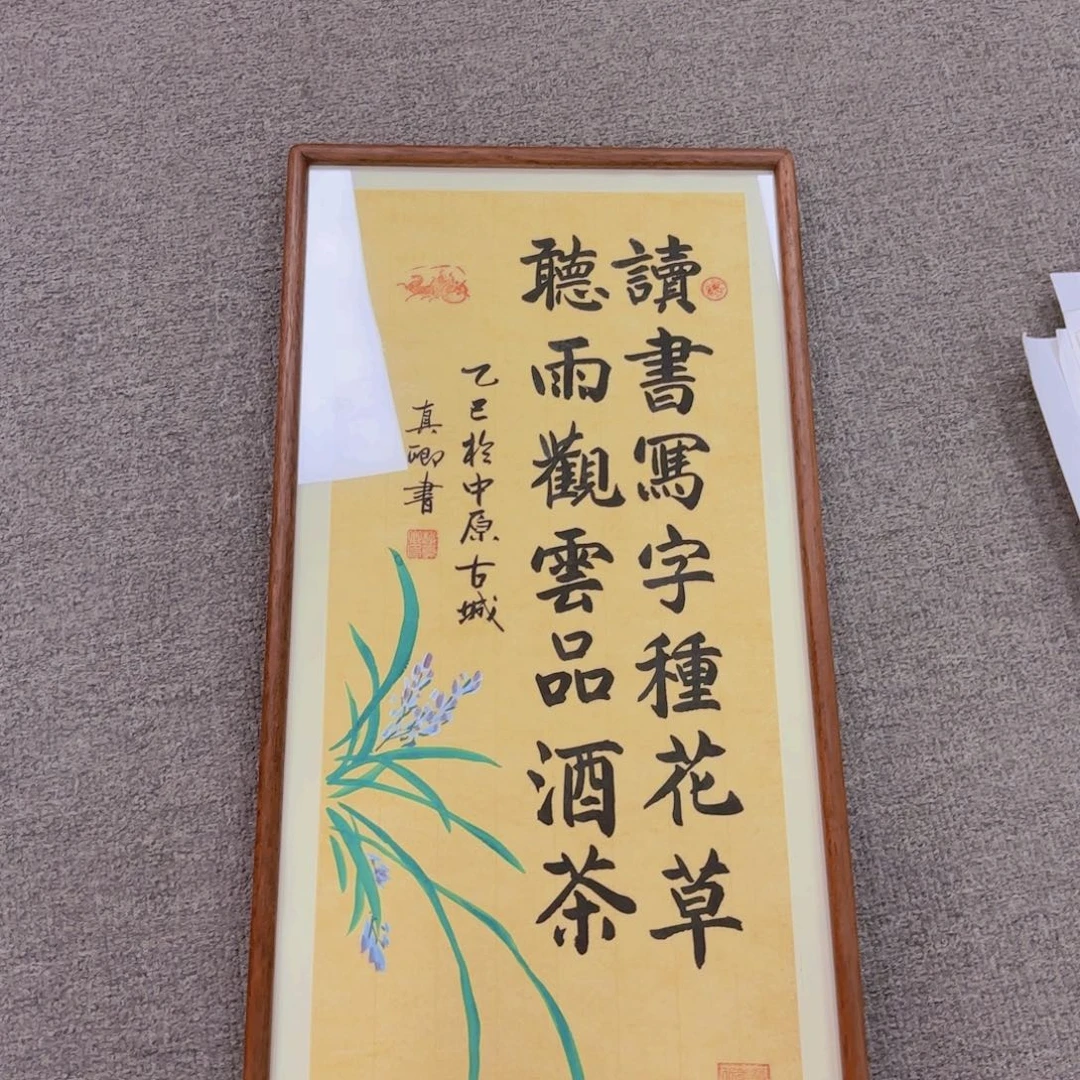 讀書寫字種花草
聽雨觀雲品酒茶
乙巳於中原古城
真卿書